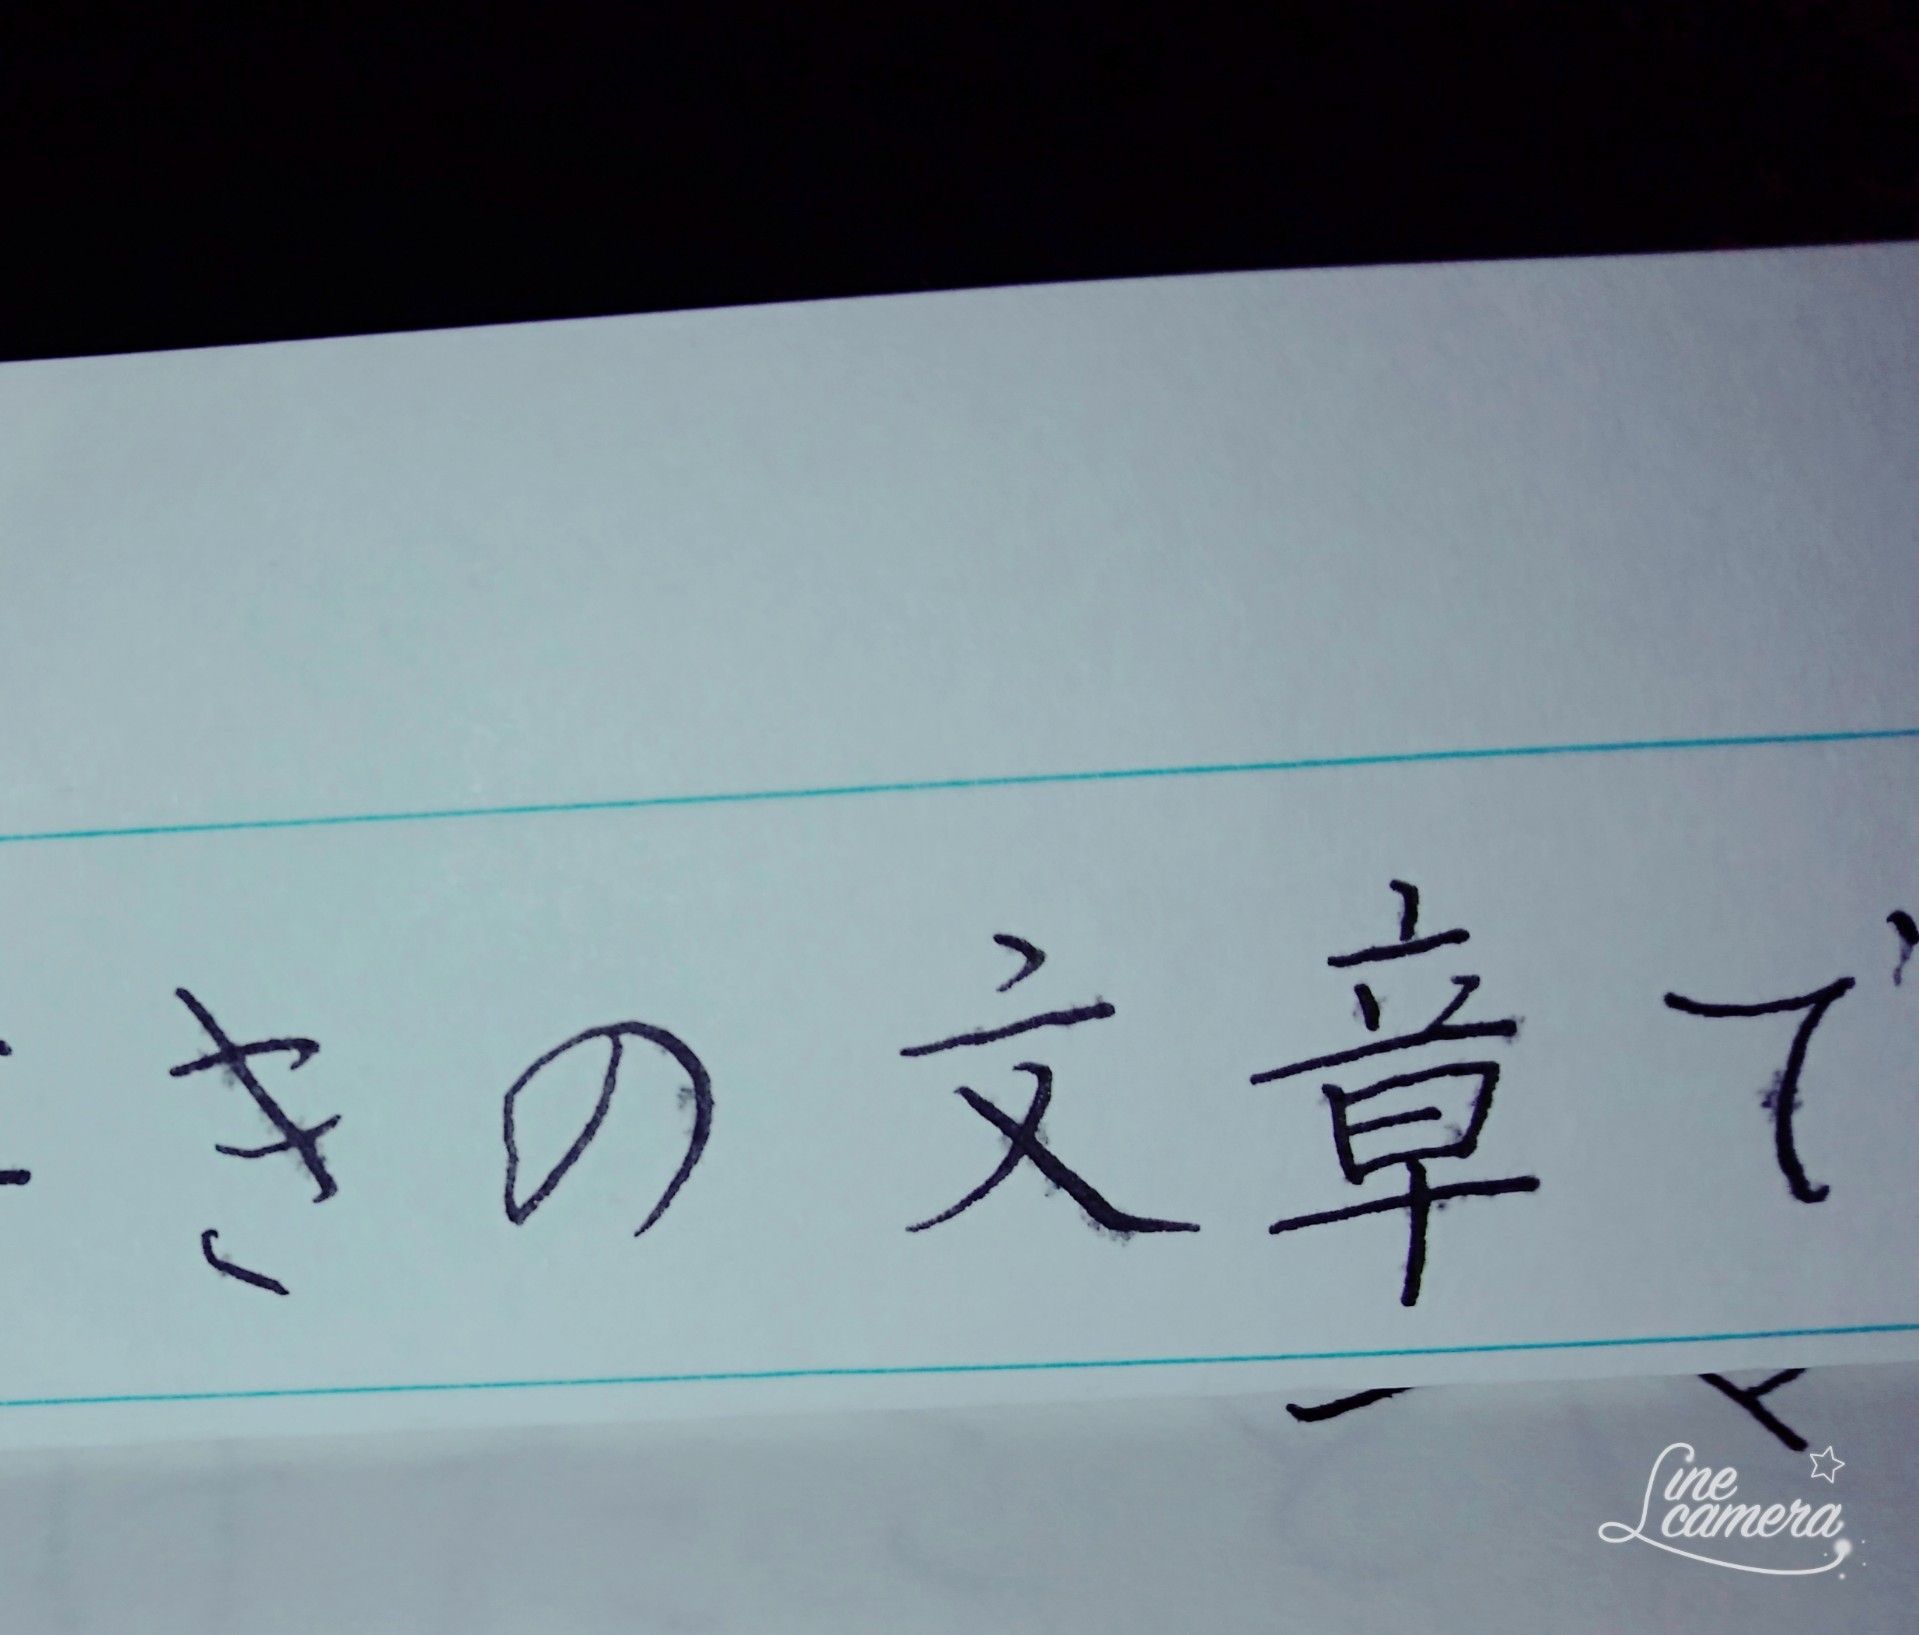 きの文章で
Line camera